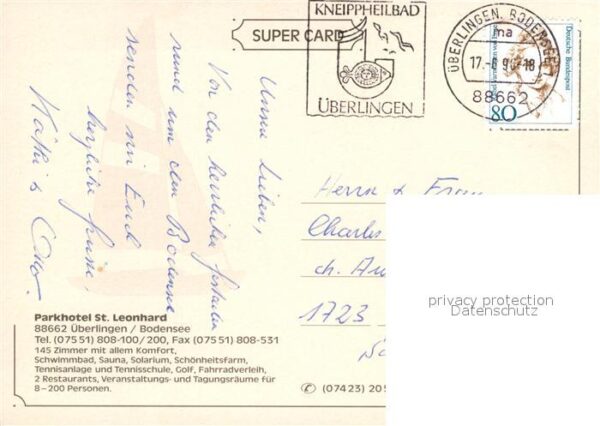 KNEIPPHEILBAD
ÜBERLINGEN
SUPER CARD
ÜBERLINGEN, BODENSEE
ma
17.-6
88662
Deutsche Bundespost
80
Unsere Lieben,
Von den herrlichen
rund um den Bodensee
senden wir Euch
herzliche Grüsse,
Käthi & Otto.
Herrn & Frau
Charles
ch.
1723
Parkhotel St. Leonhard
88662 Überlingen / Bodensee
Tel. (0 75 51) 808-100/ 200, Fax (0 75 51) 808-531
145 Zimmer mit allem Komfort,
Schwimmbad, Sauna, Solarium, Schönheitsfarm,
Tennisanlage und Tennisschule, Golf, Fahrradverleih,
2 Restaurants, Veranstaltungs- und Tagungsräume für
8–200 Personen.
(0 74 23) 20
privacy protection
Datenschutz